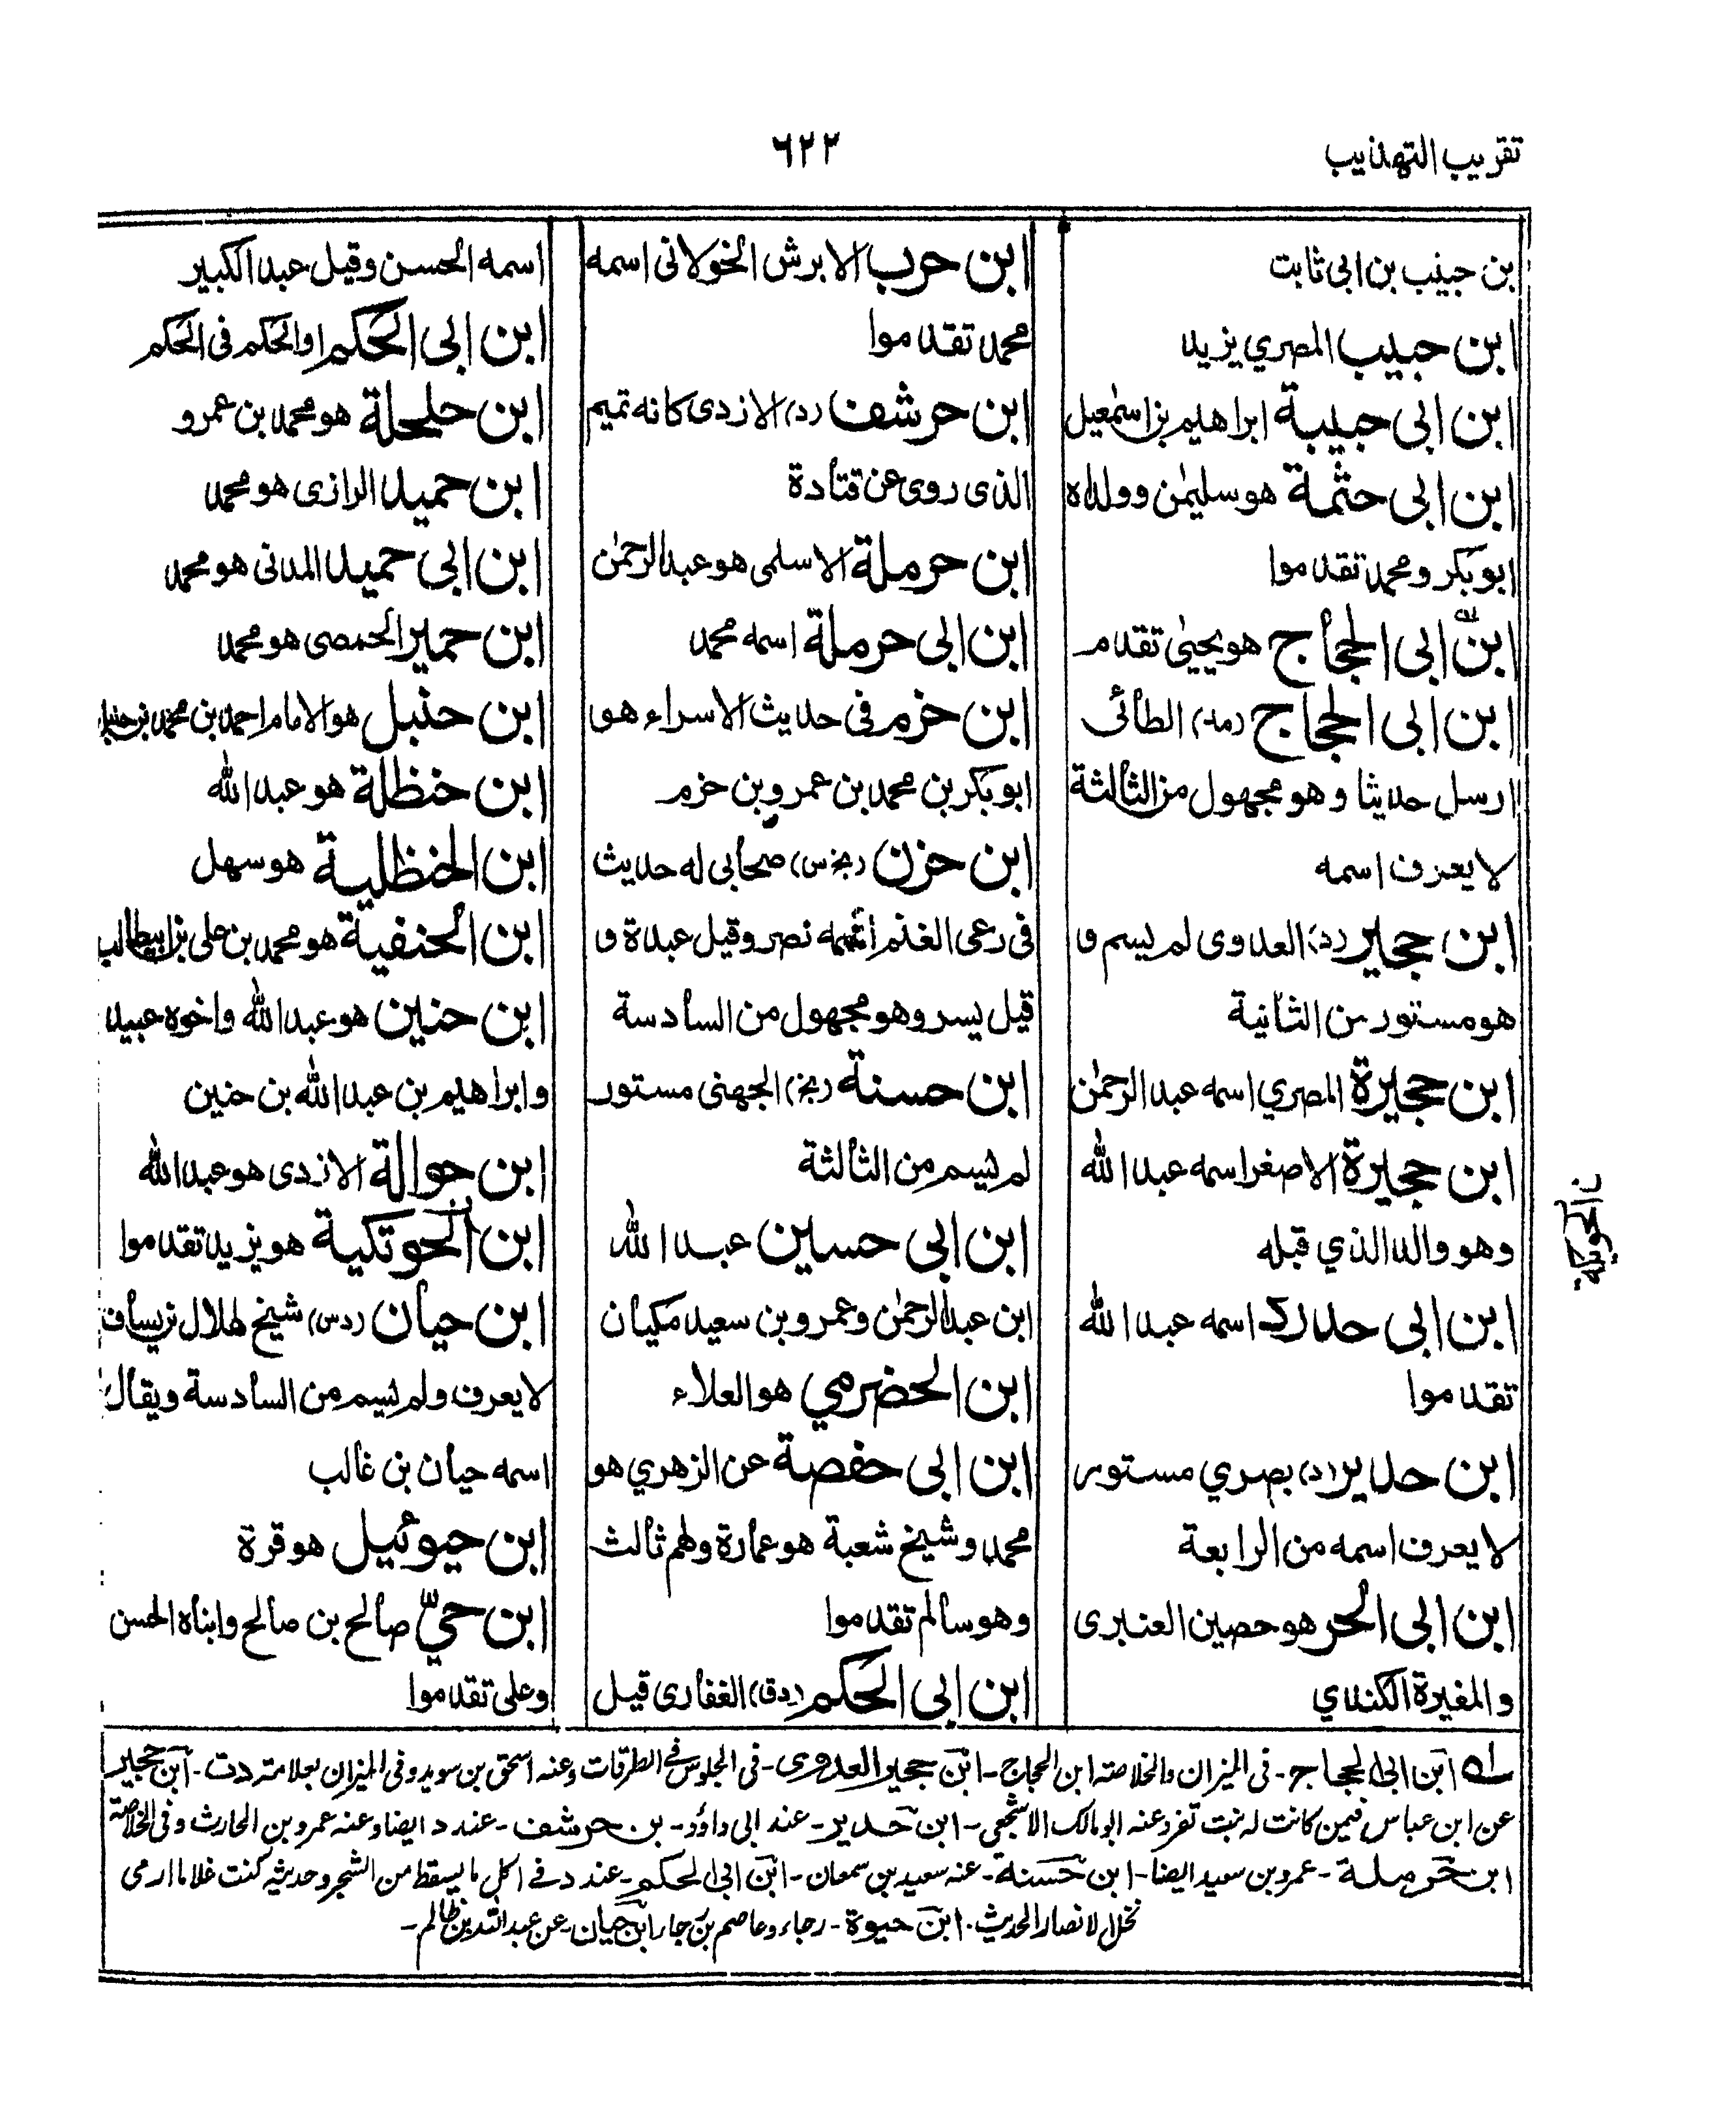 تقريب التهذيب
٦٢٢
بن حبيب بن ابى ثابت
ابن حبيب المصري يزيد
ابن ابى حبيبة ابراهيم بن اسمٰعيل
ابن ابى حثمة هو سليمٰن وولداه
ابو بكر ومحمد تقدموا
ابن ابى الحجاج هو يحيىٰ تقدم
ابن ابى الحجاج (مد) الطائى
ارسل حديثا وهو مجهول من الثالثة
لا يعرف اسمه
ابن حجير (د) العدوى لم يسم و
هو مستور من الثانية
ابن حجيرة المصري اسمه عبد الرحمٰن
ابن حجيرة الاصغر اسمه عبد الله
وهو والد الذي قبله
ابن ابى حدرد اسمه عبد الله
تقدموا
ابن حدير (د) بصري مستور
لا يعرف اسمه من الرابعة
ابن ابى الحر هو حصين العنبرى
والمغيرة الكندي
ابن حرب الابرش الخولانى اسمه
محمد تقدموا
ابن حرشف (د) الازدى كانه تميم
الذى روى عن قتادة
ابن حرملة الاسلمى هو عبد الرحمٰن
ابن ابى حرملة اسمه محمد
ابن حزم فى حديث الاسراء هو
ابو بكر بن محمد بن عمرو بن حزم
ابن حزن (بخ س) صحابى له حديث
فى رعى الغنم اسمه نصر وقيل عبدة و
قيل يسر وهو مجهول من السادسة
ابن حسنة (بخ) الجهنى مستور
لم يسم من الثالثة
ابن ابى حسين عبد الله
ابن عبد الرحمٰن وعمرو بن سعيد مكيان
ابن الحضرمي هو العلاء
ابن ابى حفصة عن الزهري هو
محمد وشيخ شعبة هو عمارة ولهم ثالث
وهو سالم تقدموا
ابن ابى الحكم (دق) الغفارى قيل
اسمه الحسن وقيل عبد الكبير
ابن ابى الحكم او الحكم فى الحكم
ابن حلحلة هو محمد بن عمرو
ابن حميد الرازى هو محمد
ابن ابى حميد المدنى هو محمد
ابن حمير الحمصى هو محمد
ابن حنبل هو الامام احمد بن محمد بن حنبل
ابن حنظلة هو عبد الله
ابن الحنظلية هو سهل
ابن الحنفية هو محمد بن على بن ابيطالب
ابن حنين هو عبد الله واخوه عبيد
وابراهيم بن عبد الله بن حنين
ابن حوالة الازدى هو عبد الله
ابن الحوتكية هو يزيد تقدموا
ابن حيان (دس) شيخ لهلال بن يساف
لا يعرف ولم يسم من السادسة ويقال
اسمه حيان بن غالب
ابن حيوئيل هو قرة
ابن حيّ صالح بن صالح وابناه الحسن
وعلى تقدموا
ابن ابى الحجاج - فى الميزان والخلاصة ابن الحجاج - ابن حجير العدوى - فى الجلوس فى الطرقات وعنه اسحق بن سويد وفى الميزان بعلامته دت - ابن حجير
عن ابن عباس فيمن كانت له بنت تفرد عنه ابو مالك الاشجعى - ابن حدير - عند ابى داؤد - بن حرشف - عند د ايضا وعنه عمرو بن الحارث وفى الخلاصة
ابن حرملة - عمرو بن سعيد ايضا - ابن حسنة - عنه سعيد بن سمعان - ابن ابى الحكم - عند د فى اكل ما يسقط من الشجر وحديثه كنت غلاما ارمى
نخل الانصار الحديث - ابن حيوة - رجاء وعاصم بن رجاء ابن حيان - عن عبد الله بن ظالم -